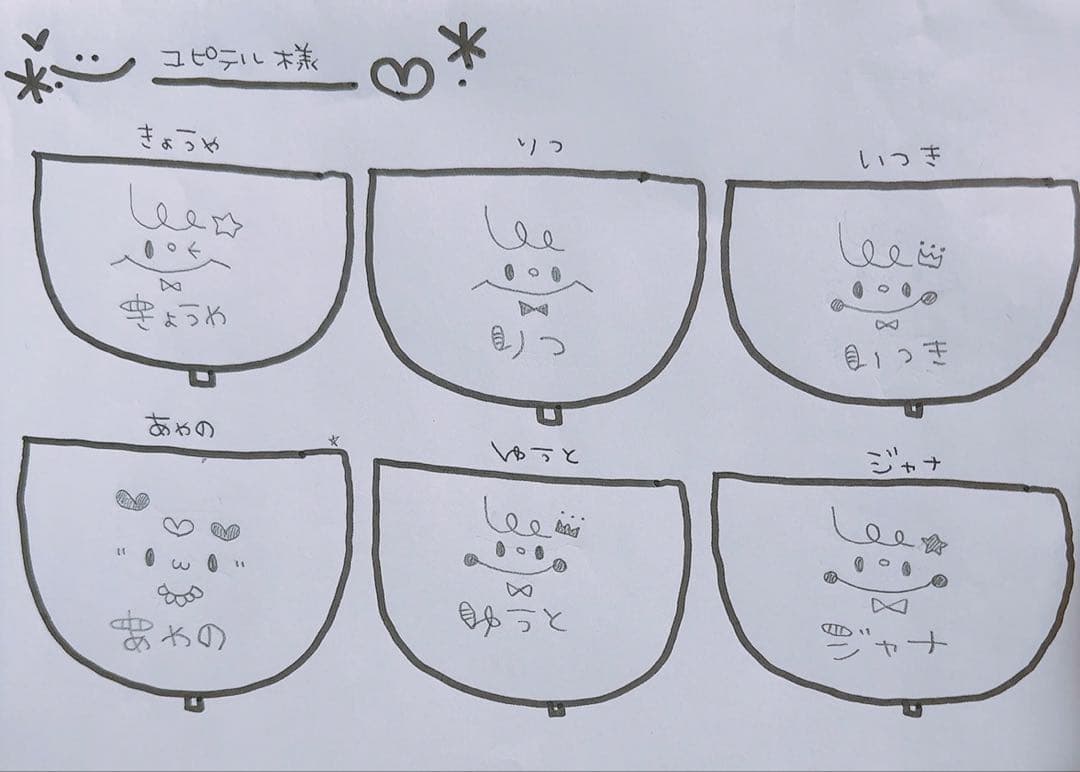 ユピテル様
きょうや
りつ
いつき
きょうや
りつ
いつき
あやの
ゆうと
ジャナ
あやの
ゆうと
ジャナ